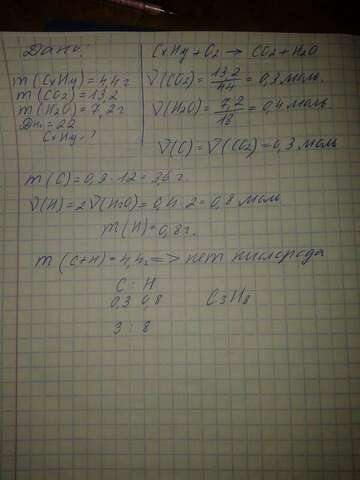 Дано:
m(CxHy)=4,4г
m(CO2)=13,2
m(H2O)=7,2г
Dн₂=22
CxHy-?
CxHy+O2 → CO2+H2O
ν(CO2)=13,2/44=0,3моль.
ν(H2O)=7,2/18=0,4моль
ν(C)=ν(CO2)=0,3моль
m(C)=0,3·12=3,6г.
ν(H)=2ν(H2O)=0,4·2=0,8моль
m(H)=0,8г.
m(C+H)=4,4г=>нет кислорода
C : H
0,3 0,8 C3H8
3 : 8